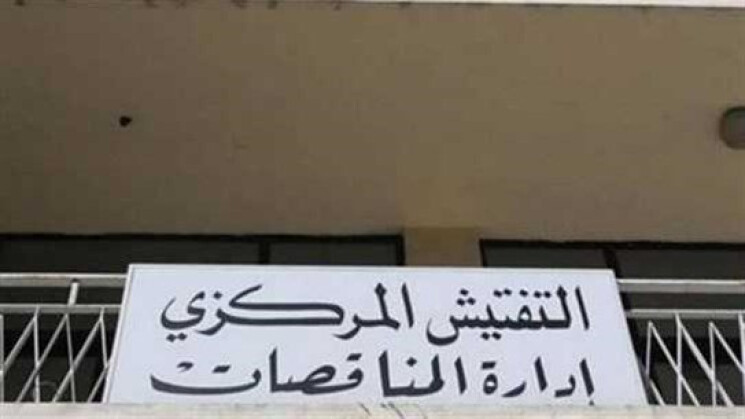 التفتيش المركزي
إدارة المناقصات